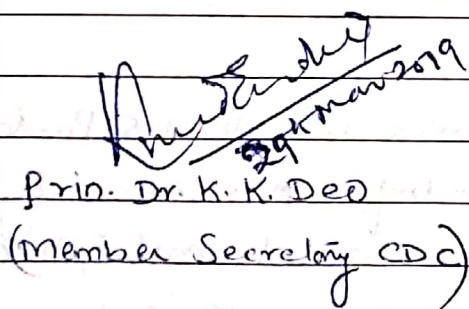 29th Mar 2019
Prin. Dr. K. K. Deo
(Member Secretary CDC)